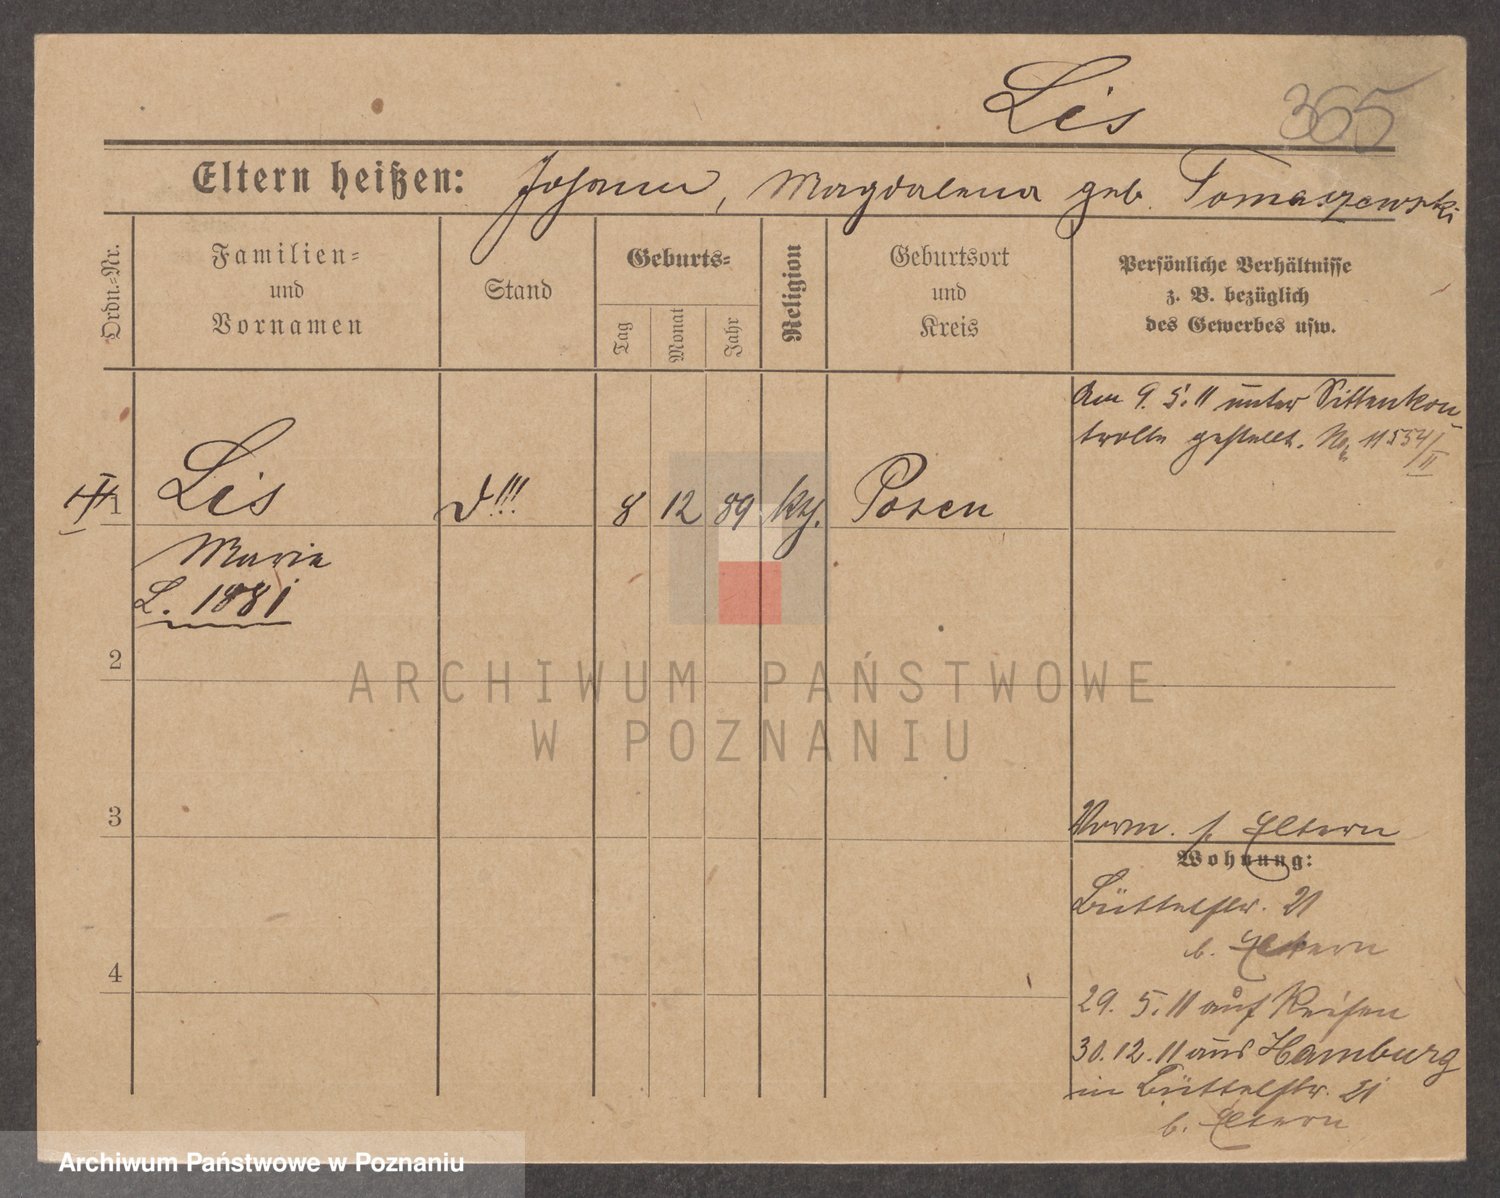 Lis 365
Eltern heißen: Johann, Magdalena geb. Tomaszewski
Ordn.-Nr.
Familien-
und
Vornamen
Stand
Geburts-
Tag
Monat
Jahr
Religion
Geburtsort
und
Kreis
Persönliche Verhältnisse
z. B. bezüglich
des Gewerbes usw.
Am 9. 5. 11 unter Sittenkon-
trolle gestellt. 11554/II
1 Lis 8 12 89 kth. Posen
Marie
L. 1881
2
3
4
ARCHIWUM PAŃSTWOWE
W POZNANIU
Vorm. s. Eltern
Wohnung:
Büttelstr. 21
b. Eltern
29. 5. 11 auf Reisen
30. 12. 11 aus Hamburg
in Büttelstr. 21
b. Eltern
Archiwum Państwowe w Poznaniu